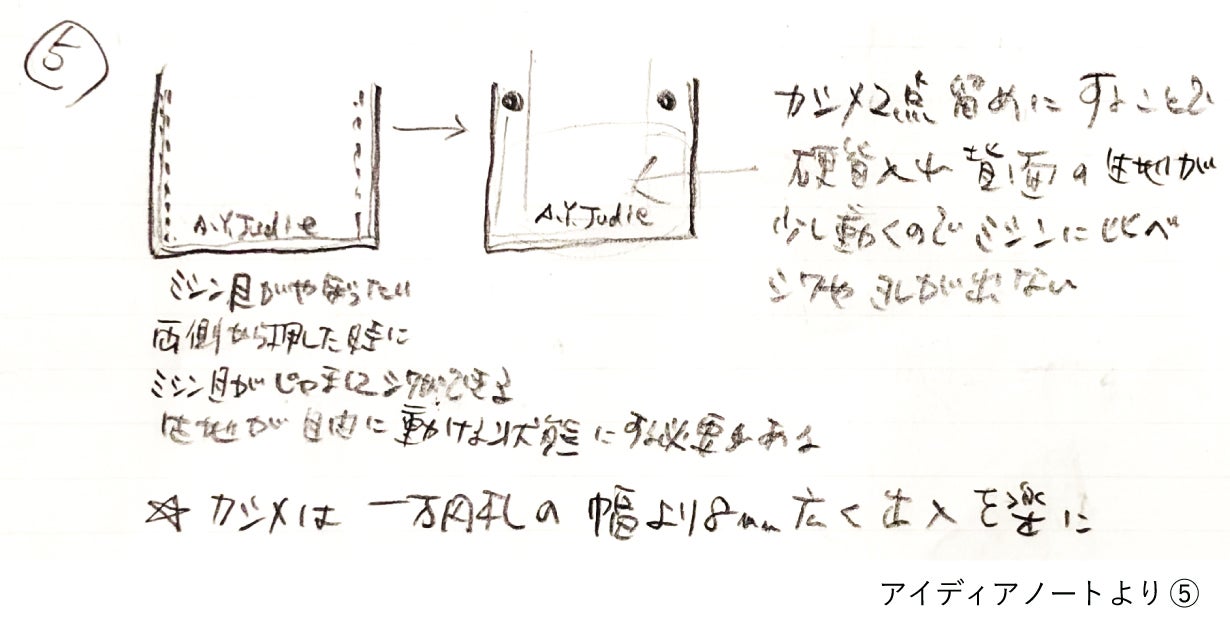 ⑤
A.Y.Judie
A.Y.Judie
カシメ2点留めにすることで
硬質入や背面の生地が
少し動くのでミシンに比べ
シワやヨレが出ない
ミシン目がやぼったい
両側から押した時に
ミシン目がじゃましてシワができる
生地が自由に動ける状態にする必要がある
☆ カシメは一万円札の幅より8mm広く出入を楽に
アイディアノートより⑤